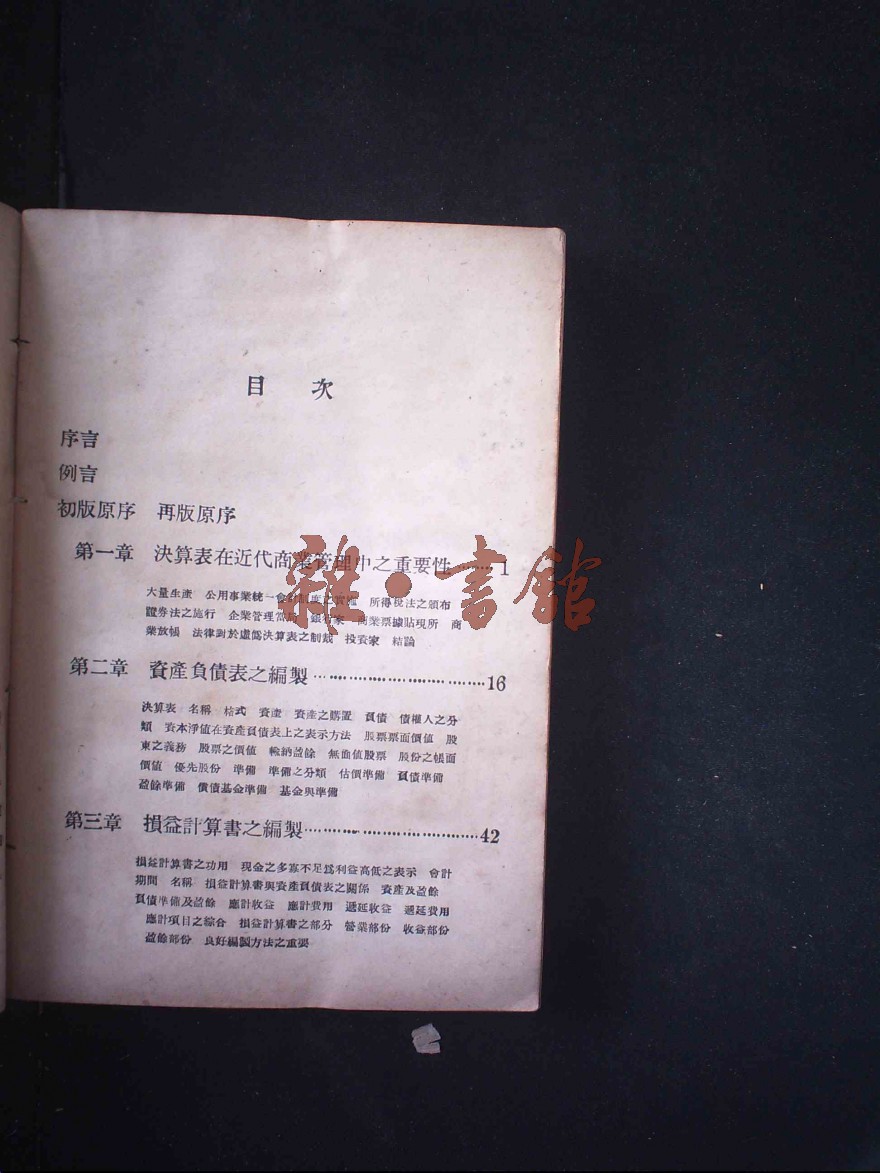 目 次
序言
例言
初版原序 再版原序
第一章 決算表在近代商業管理中之重要性………1
大量生產 公用事業統一會計制度之實施 所得稅法之頒布
證券法之施行 企業管理當局 銀行家 商業票據貼現所 商
業放帳 法律對於虛僞決算表之制裁 投資家 結論
第二章 資產負債表之編製……………………………16
決算表 名稱 格式 資產 資產之購置 負債 債權人之分
類 資本淨值在資產負債表上之表示方法 股票票面價值 股
東之義務 股票之價值 輸納盈餘 無面值股票 股份之帳面
價值 優先股份 準備 準備之分類 估價準備 負債準備
盈餘準備 償債基金準備 基金與準備
第三章 損益計算書之編製……………………………42
損益計算書之功用 現金之多寡不足爲利益高低之表示 會計
期間 名稱 損益計算書與資產負債表之關係 資產及盈餘
負債準備及盈餘 應計收益 應計費用 遞延收益 遞延費用
應計項目之綜合 損益計算書之部分 營業部份 收益部份
盈餘部份 良好編製方法之重要
雜·書館